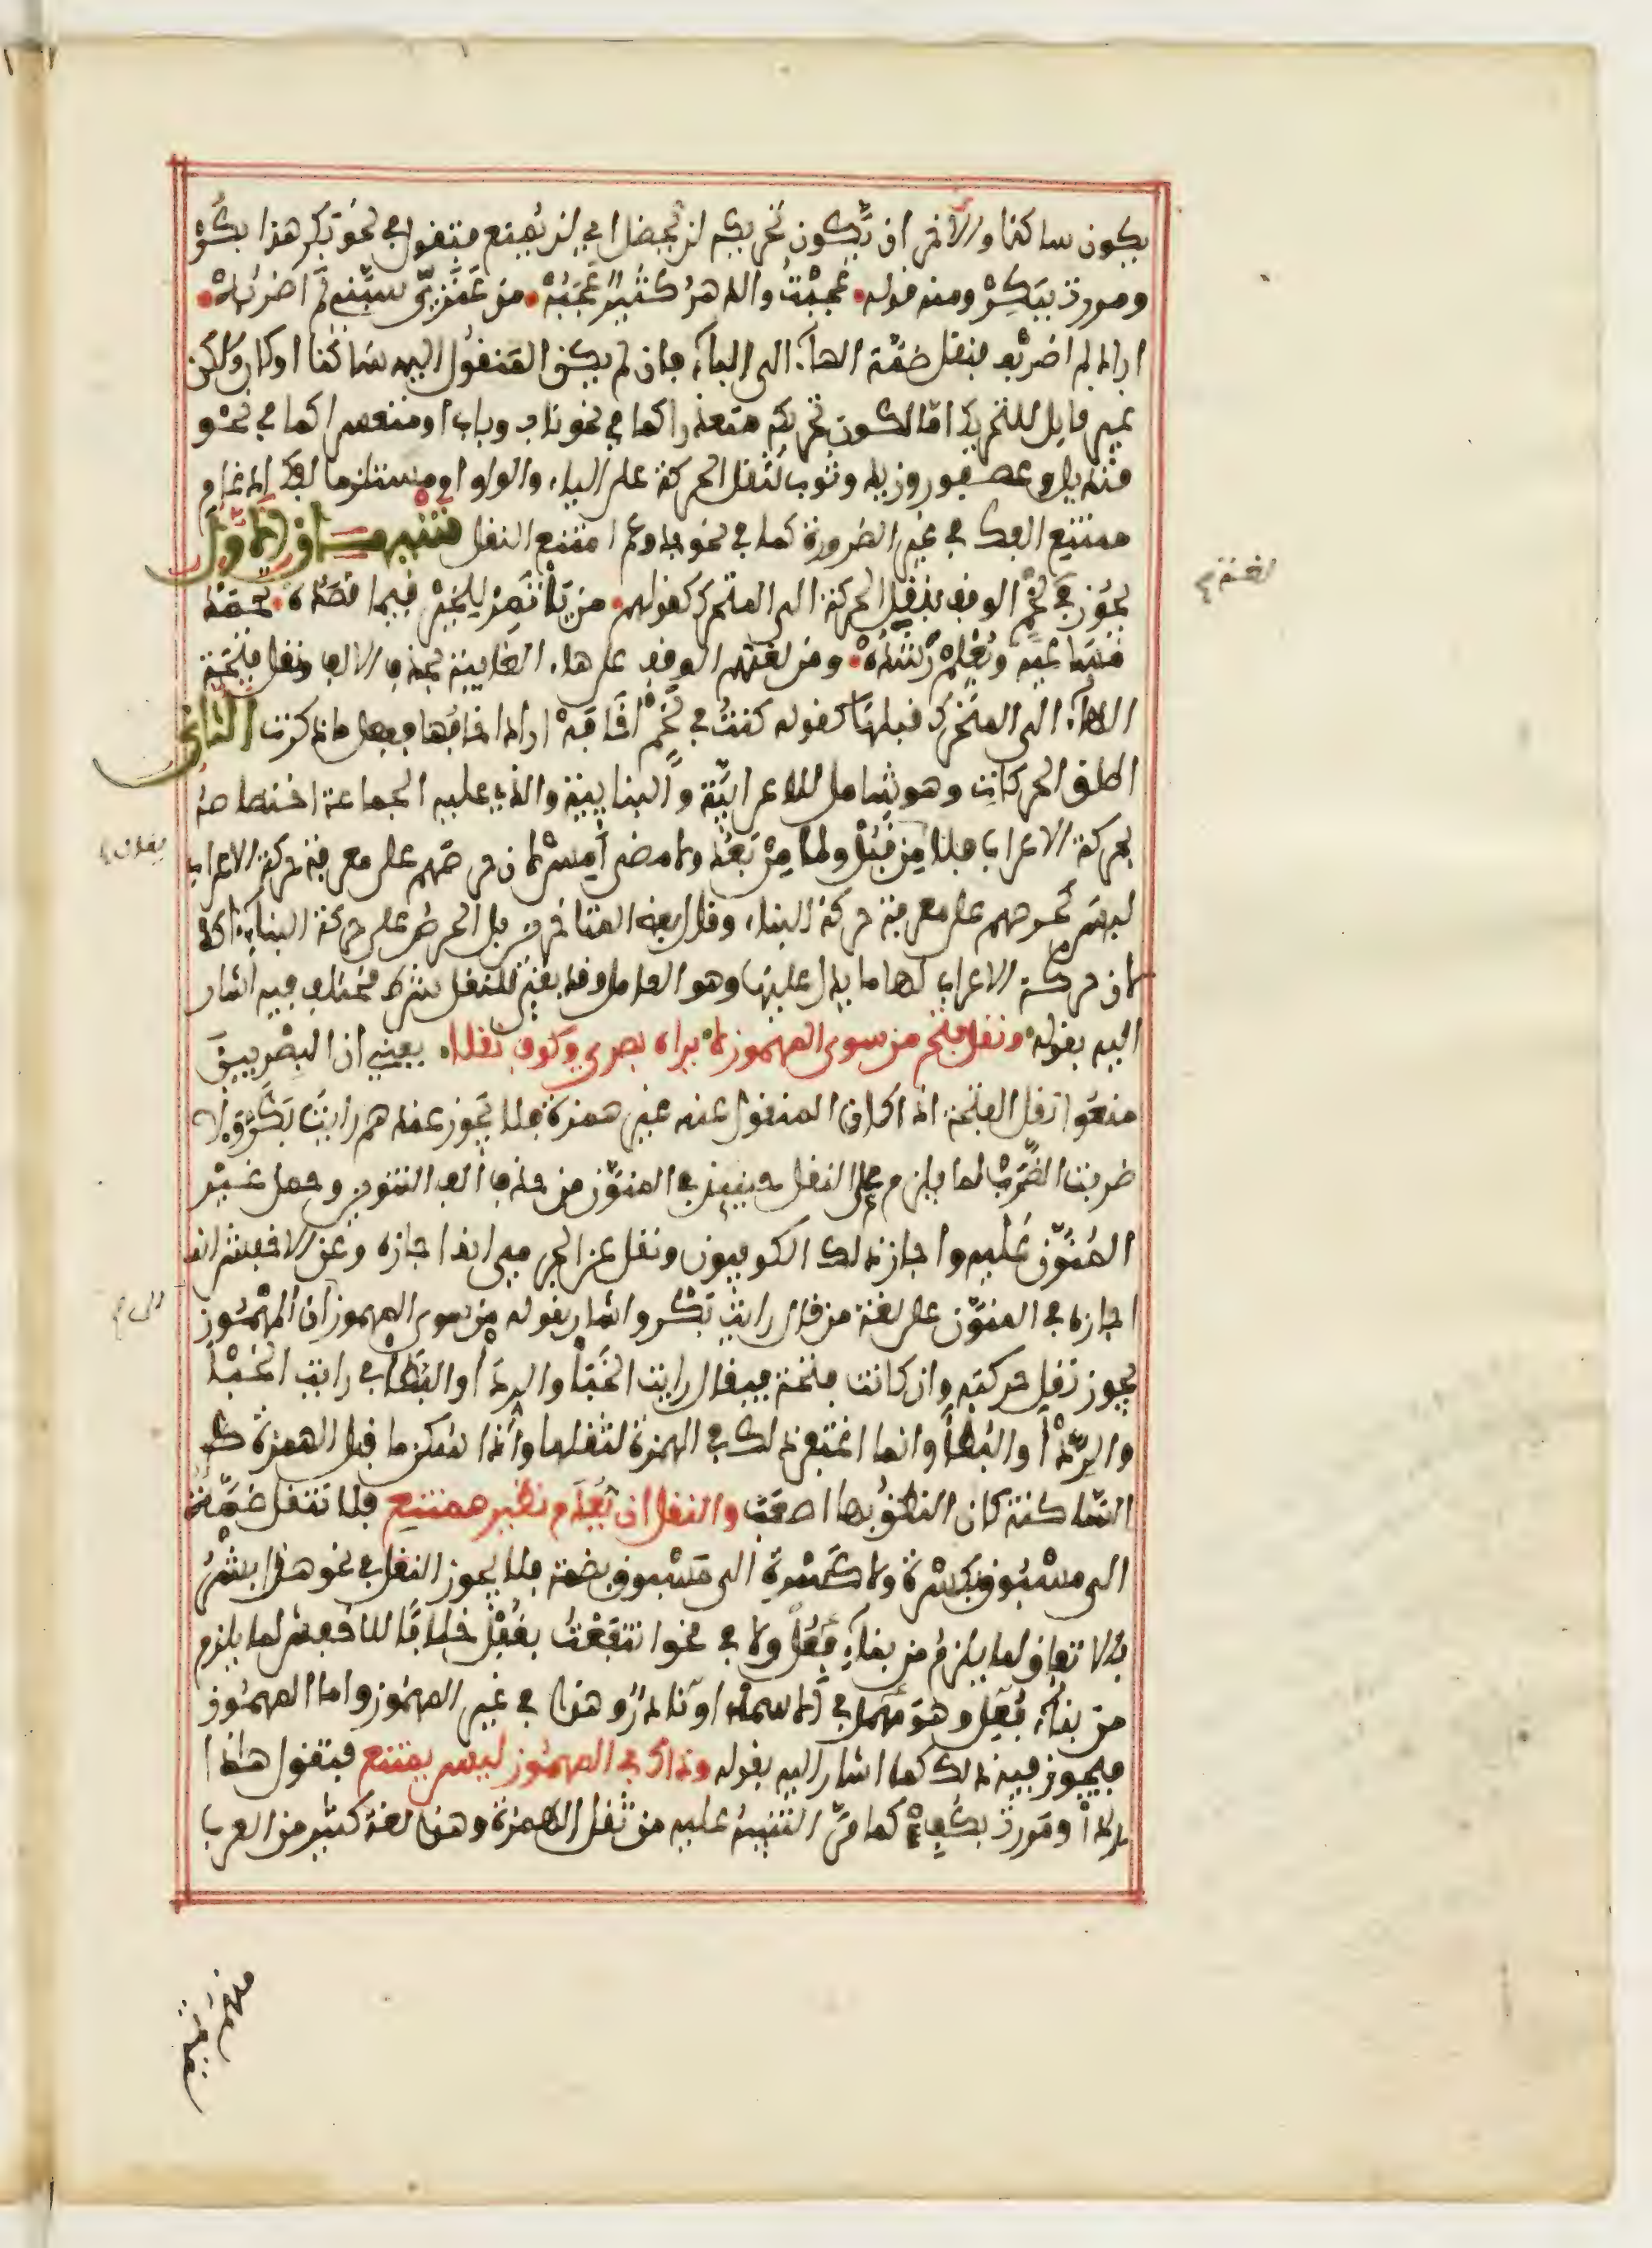 يكون ساكنا والآخر ان يكون تحريكه لن يحضلا اي لن يمنع فتقول في نحو بكر هذا بكر
ومررت ببكر ومنه قوله عجبت والدهر كثير عجبه من عنزي سبني لم اضربه
اراد لم اضربه فنقل ضمة الهاء الى الباء فان لم يكن المنقول اليه ساكنا او كان ولكن
غير قابل للتحريك اما لكون تحريكه متعذرا كما في نحو ناب وباب او متعسرا كما في نحو
قنديل وعصفور وزيد وثوب لثقل الحركة على الياء والواو او مستلزما لفك ادغام
ممتنع الفك في غير الضرورة كما في نحو جد وعم امتنع النقل تنبيهان الاول
يجوز في لغة لخم الوقف بنقل الحركة الى المتحرك كقولهم من ياتمر للخير فيما قصده تحمد
مساعيه ويعلم رشده ومن لغتهم الوقف على هاء الغايبة بحذف الالف ونقل فتحة
الهاء الى المتحرك قبلها كقوله كنت في لخم اخافه اراد اخافها ففعل ما ذكرت الثاني
اطلق الحركات وهو شامل للاعرابية والبنايية والذي عليه الجماعة اختصاصه
بحركة الاعراب فلا من قبل ولا من بعد ولا مضى امس لان حرصهم على معرفة حركة الاعراب
ليس كحرصهم على معرفة حركة البناء وقال بعض المتاخرين بل الحرص على حركة البناء اكد
لان حركة الاعراب لها ما يدل عليها وهو العامل وقد بقي للنقل شرط مختلف فيه اشار
اليه بقوله ونقل فتح من سوى المهموز لا يراه بصري وكوف نقلا يعني ان البصريين
منعوا نقل الفتحة اذا كان المنقول عنه غير همزة فلا يجوز عندهم رايت بكر ولا
ضربت الضرب لما يلزم على النقل حينيذ في المنون من حذف الف التنوين وحمل غير
المنون عليه واجاز ذلك الكوفيون ونقل عن الجرمي انه اجازه وعن الاخفش انه
اجازه في المنون على لغة من قال رايت بكر واشار بقوله من سوى المهموز ان المهموز
يجوز نقل حركته وان كانت فتحة فيقال رايت الخبا والردا والبطا في رايت الخبأ
والردأ والبطأ وانما اغتفر ذلك في الهمزة لثقلها واذا سكن ما قبل الهمزة
الساكنة كان النطق بها اصعب والنقل ان يعدم نظير ممتنع فلا تنقل ضمة
الى مسبوق بكسرة ولا كسرة الى مسبوق بضمة فلا يجوز النقل في نحو هذا بشر
بالاتفاق لما يلزم من بناء فعل ولا في نحو انتفعت بقفل خلافا للاخفش لما يلزم
من بناء فعل وهو مهمل في الاسماء او نادر وهذا في غير المهموز واما المهموز
فيجوز فيه ذلك كما اشار اليه بقوله وذاك في المهموز ليس يمتنع فيتقول هذا
ردأ ومررت بكفء كما مر التنبيه عليه من ثقل الهمزة وهذه لغة كثير من العرب
لغة